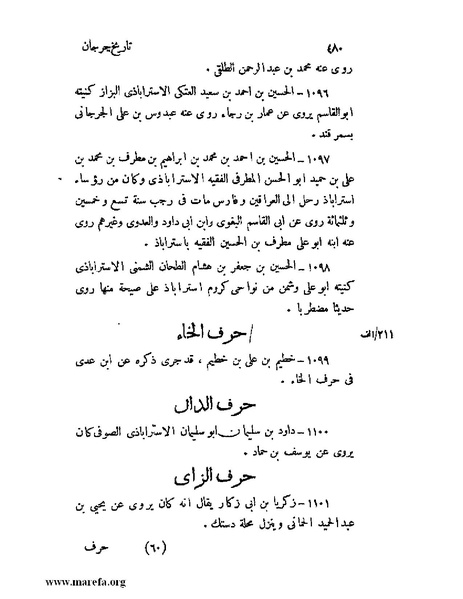 ٤٨٠ تاريخ جرجان
روى عنه محمد بن عبد الرحمن الطلقى .
١٠٩٦ – الحسين بن احمد بن سعيد العتكى الاستراباذى البزاز كنيته
ابو القاسم يروى عن عمار بن رجاء روى عنه عبدوس بن على الجرجانى
بسمرقند .
١٠٩٧ – الحسين بن احمد بن محمد بن ابراهيم بن مطرف بن محمد بن
على بن حميد ابو الحسن المطرفى الفقيه الاستراباذى وكان من رؤساء
استراباذ رحل الى العراقين وفارس مات فى رجب سنة تسع و خمسين
وثلثمائة روى عن ابى القاسم البغوى وابن ابى داود والعدوى وغيرهم روى
عنه ابنه ابو على مطرف بن الحسين الفقيه باستراباذ .
١٠٩٨ – الحسين بن جعفر بن هشام الطحان الشمنى الاستراباذى
كنيته ابو على وشمن من نواحى كروم استراباذ على صيحة منها روى
حديثا مضطربا .
٢١١/الف / حرف الخاء
١٠٩٩ – خطيم بن على بن خطيم ، قد جرى ذكره عن ابن عدى
فى حرف الخاء .
حرف الدال
١١٠٠ – داود بن سليمان ابو سليمان الاستراباذى الصوفى كان
يروى عن يوسف بن حماد .
حرف الزاى
١١٠١ – زكريا بن ابى زكار يقال انه كان يروى عن يحيى بن
عبد الحميد الحمانى وينزل محلة دستك .
(٦٠) حرف
www.marefa.org